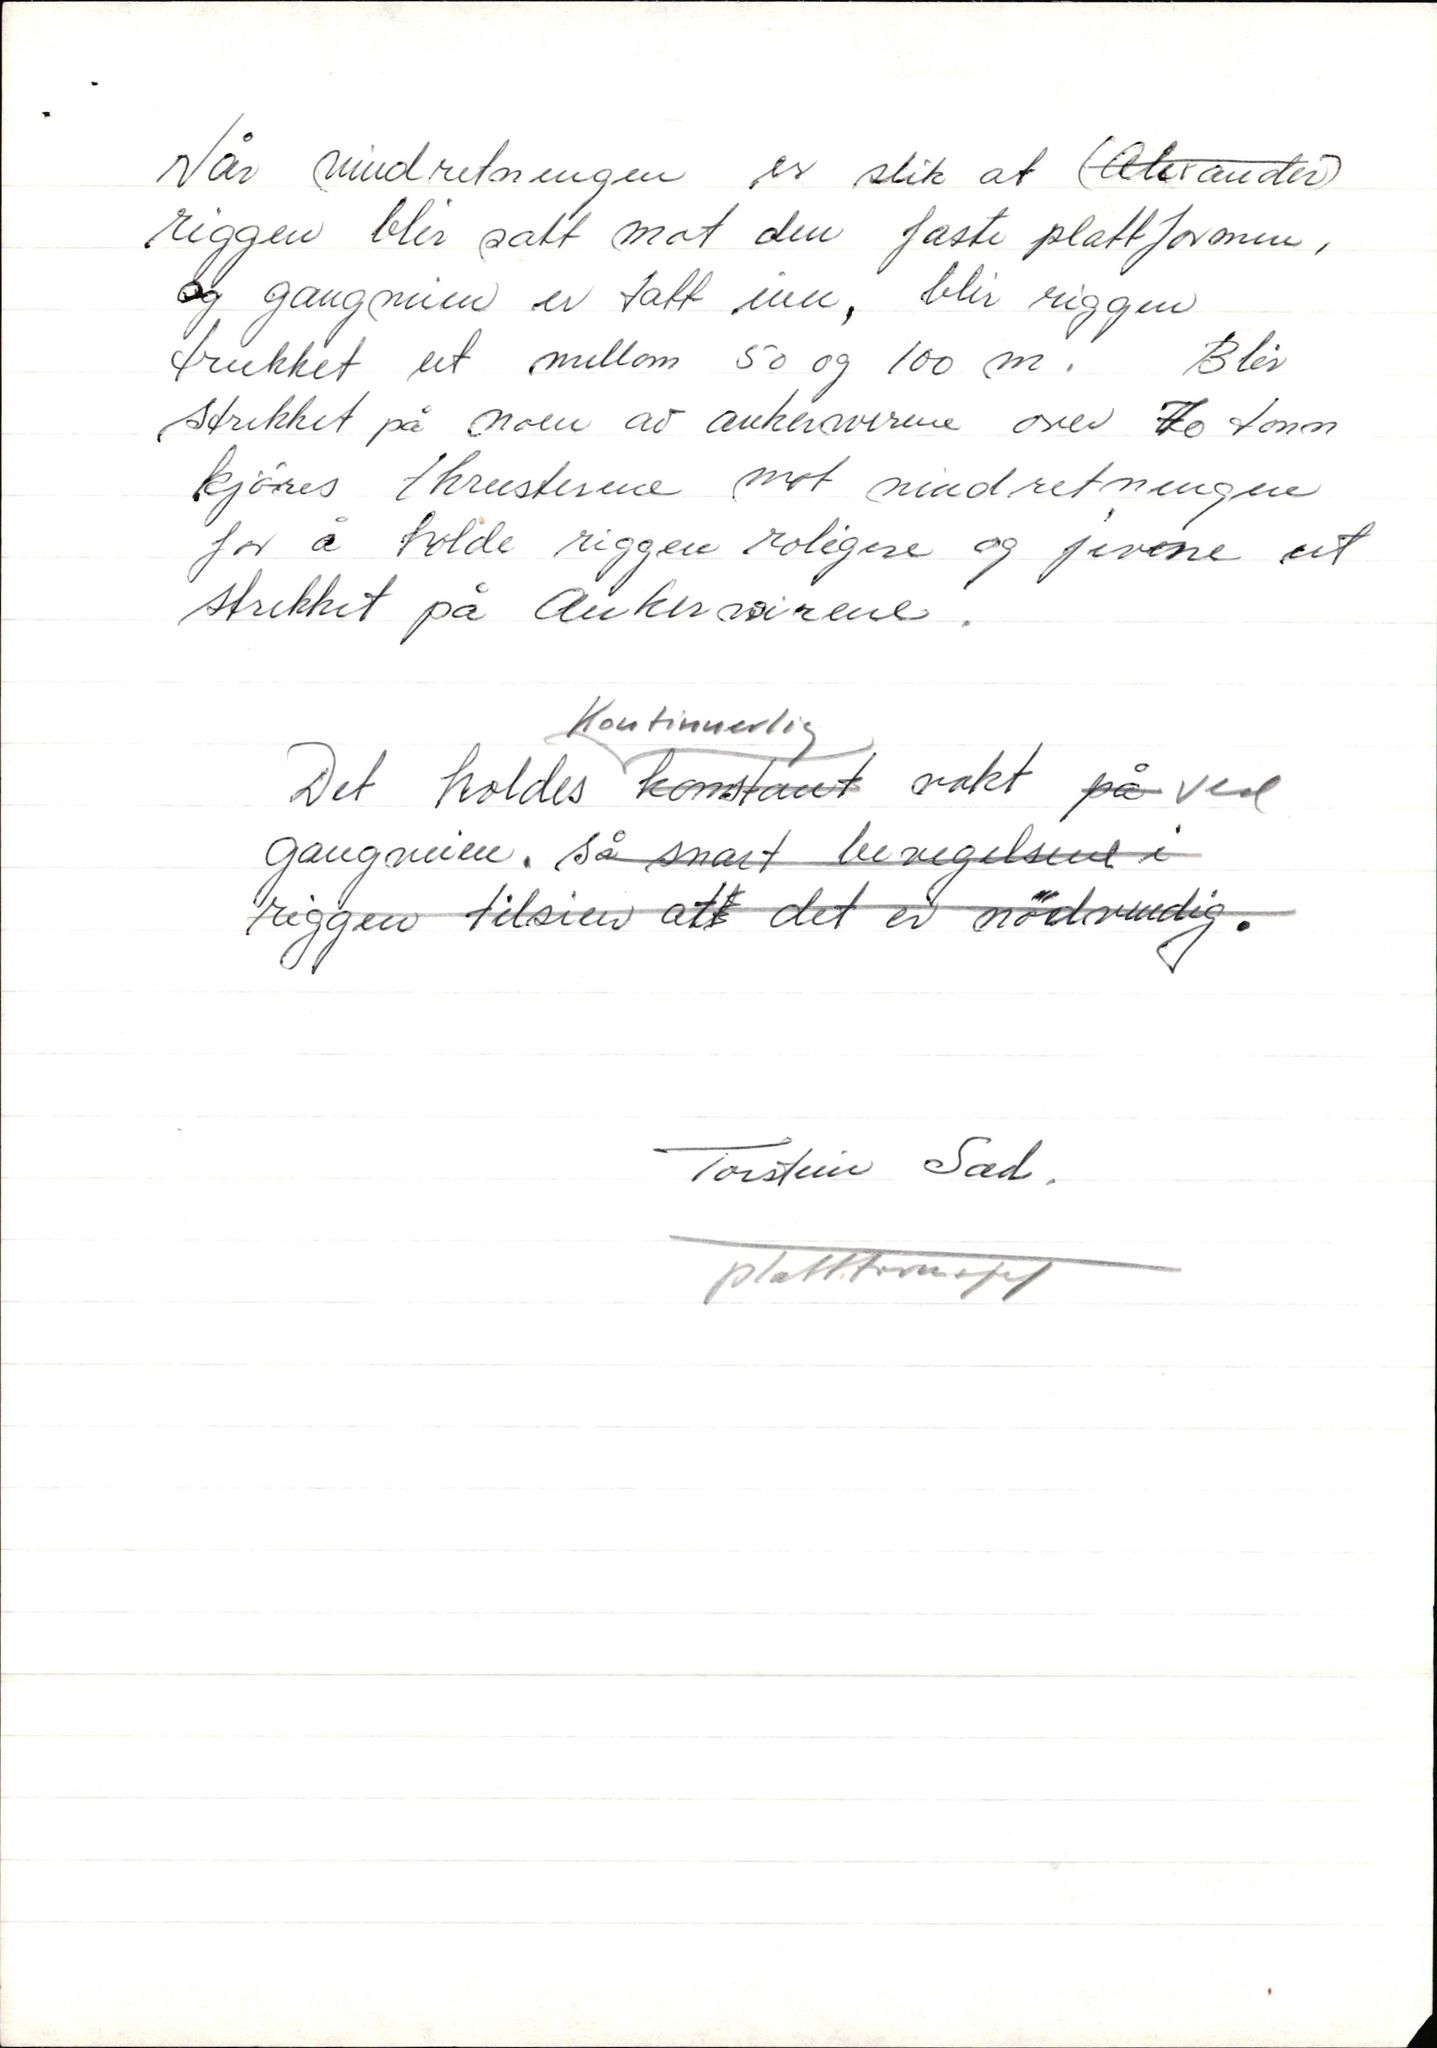 Når vindretningen er slik at (Alexander)
riggen blir satt mot den faste plattformen,
og gangveien er tatt inn, blir riggen
trukket ut mellom 50 og 100 m. Blir
strekket på noen av ankerwirene over 70 tonn
kjöres thrusterene mot vindretningen
for å holde riggen roligere og jevne ut
strekket på Ankerwirene.
Kontinuerlig
Det holdes konstant vakt på ved
gangveien. så snart bevegelsene i
riggen tilsier at det er nödvendig.
Torstein Sæd.
plattformsjef